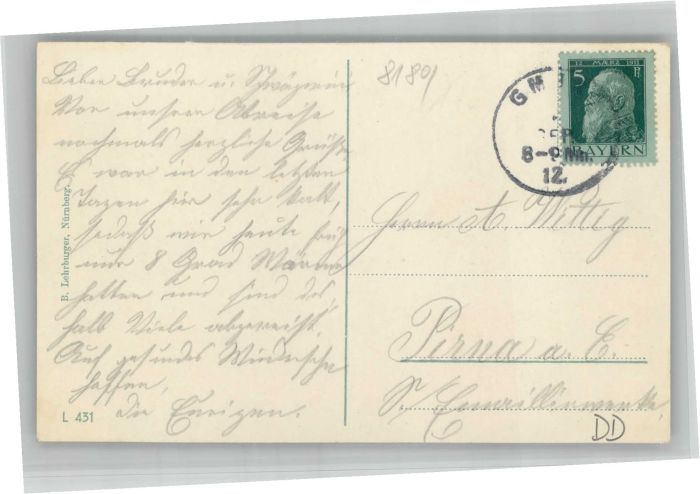 Lieber Bruder u. Schwägerin
Vor unserer Abreise
nochmals herzliche Grüße.
Es war in den letzten
Tagen hier sehr kalt,
sodaß wir heute früh
nur 8 Grad Wärme
hatten und sind des=
halb Viele abgereist.
Auf gesundes Wiedersehn
hoffen,
Die Eurigen.
B. Lehrburger, Nürnberg.
L 431
81801
GM
SEP.
8-9 Nm.
12.
12. MÄRZ 1911
5 Pf
BAYERN
Herrn A. Wittig
Pirna a. E.
Emaillierwerke
DD